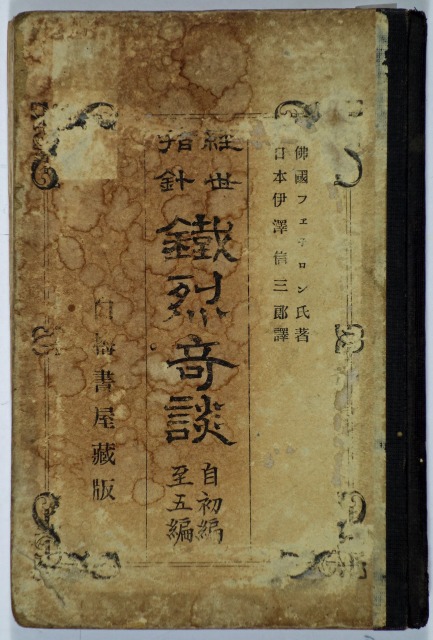 佛國フェヌロン氏著
日本伊澤信三郎譯
經世
指針
鐵烈奇談
自初編
至五編
白梅書屋藏版